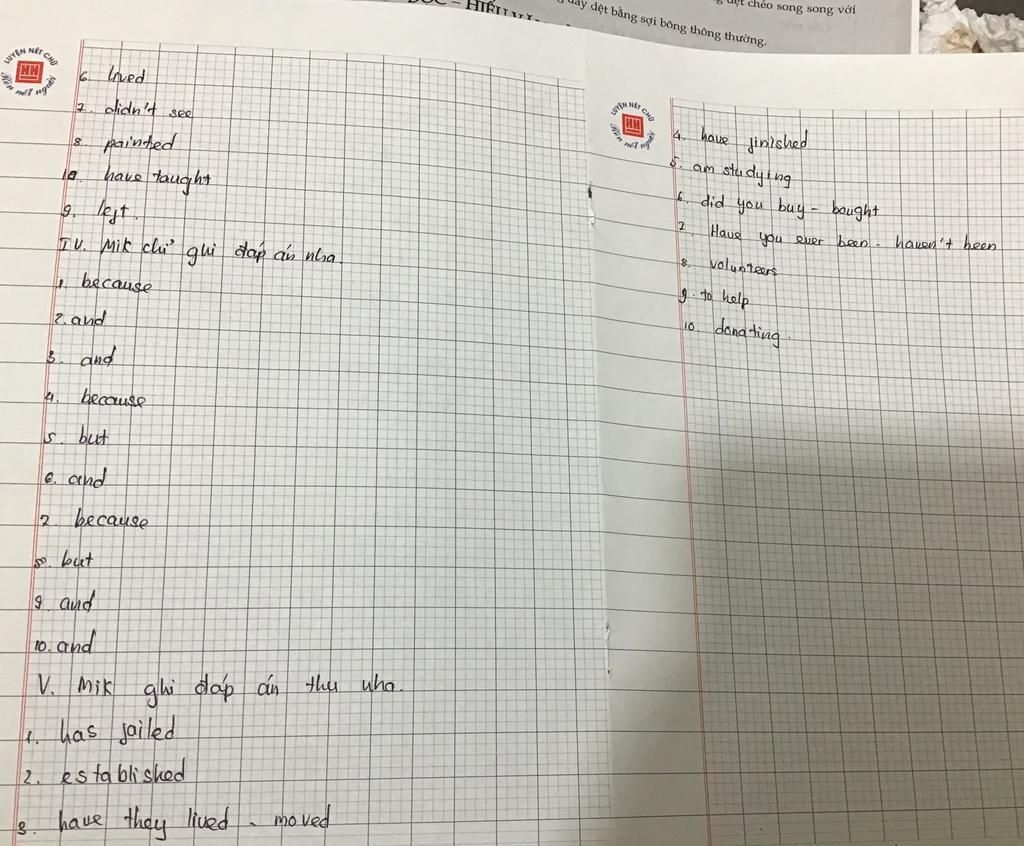 dệt chéo song song với
dây dệt bằng sợi bông thông thường.
LUYỆN NÉT CHỮ
Rèn nết người
6. lived
7. didn't see
8. painted
10. have taught
9. left.
IV. Mik chỉ ghi đáp án nha.
1. because
2. and
3. and
4. because
5. but
6. and
7. because
8. but
9. and
10. and
V. Mik ghi đáp án thu nha.
1. has failed
2. established
3. have they lived - moved
LUYỆN NÉT CHỮ
Rèn nết người
4. have finished
5. am studying
6. did you buy - bought
7. Have you ever been - haven't been
8. volunteers
9. to help
10. donating.